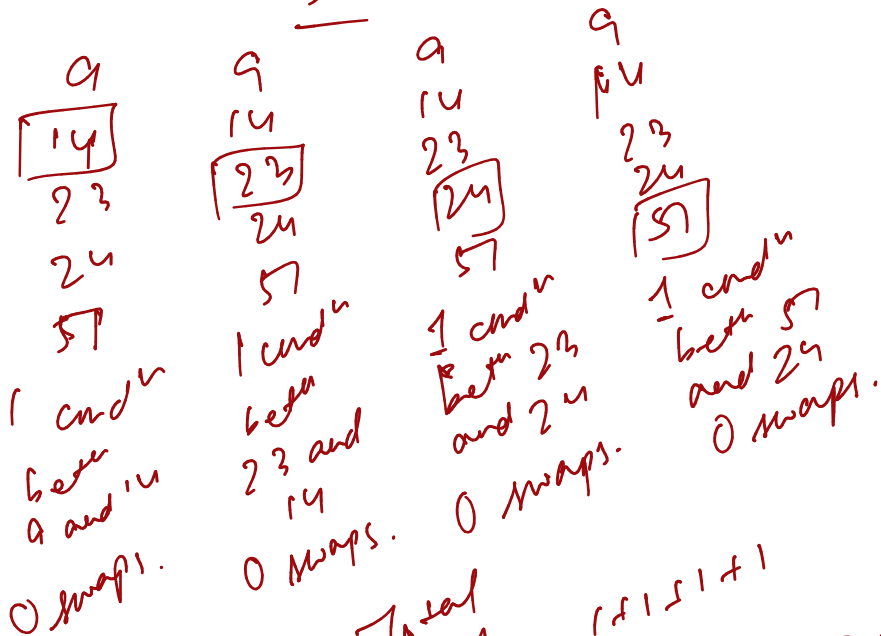 9
14
23
24
57
1 condn
betn
9 and 14
0 swaps.
9
14
23
24
57
1 condn
betn
23 and
14
0 swaps.
9
14
23
24
57
1 condn
betn 23
and 24
0 swaps.
9
14
23
24
57
1 condn
betn 57
and 24
0 swaps.
Total
1+1+1+1